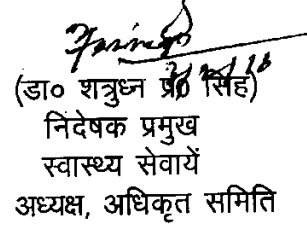 (डा० शत्रुध्न प्र० सिंह)
निदेषक प्रमुख
स्वास्थ्य सेवायें
अध्यक्ष, अधिकृत समिति